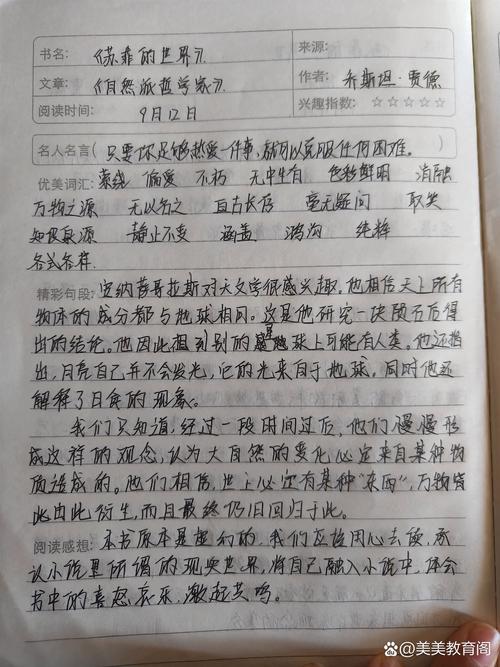 书名：《苏菲的世界》. 来源：
文章：《自然派哲学家》. 作者：乔斯坦·贾德
阅读时间： 9月12日 兴趣指数：☆☆☆☆☆
名人名言（只要你足够热爱一件事，就可以克服任何困难。 ）
优美词汇：萦绕 偏爱 不朽 无中生有 色彩鲜明 消融
万物之源 无以名之 亘古长存 毫无疑问 取笑
知识泉源 静止不变 涵盖 鸿沟 纯粹
各式各样.
精彩句段：安纳萨哥拉斯对天文学很感兴趣。他相信天上所有
物体的成分都与地球相同。这是他研究一块陨石后得
出的结论。他因此想到别的星球上可能有人类。他还指
出，月亮自己并不会发光，它的光来自于地球。同时他还
解释了日食的现象。
我们只知道，经过一段时间过后，他们慢慢形
成这样的观念，认为大自然的变化必定来自某种物
质造成的。他们相信，世上必定有某种“东西”，万物皆
由此衍生，而且最终仍旧回归于此。
阅读感想：本书原本是梦幻的，我们应该用心去读，承
认小说里所谓的现实世界，将自己融入小说中，体会
书中的喜怒哀乐，激起共鸣。
@美美教育阁